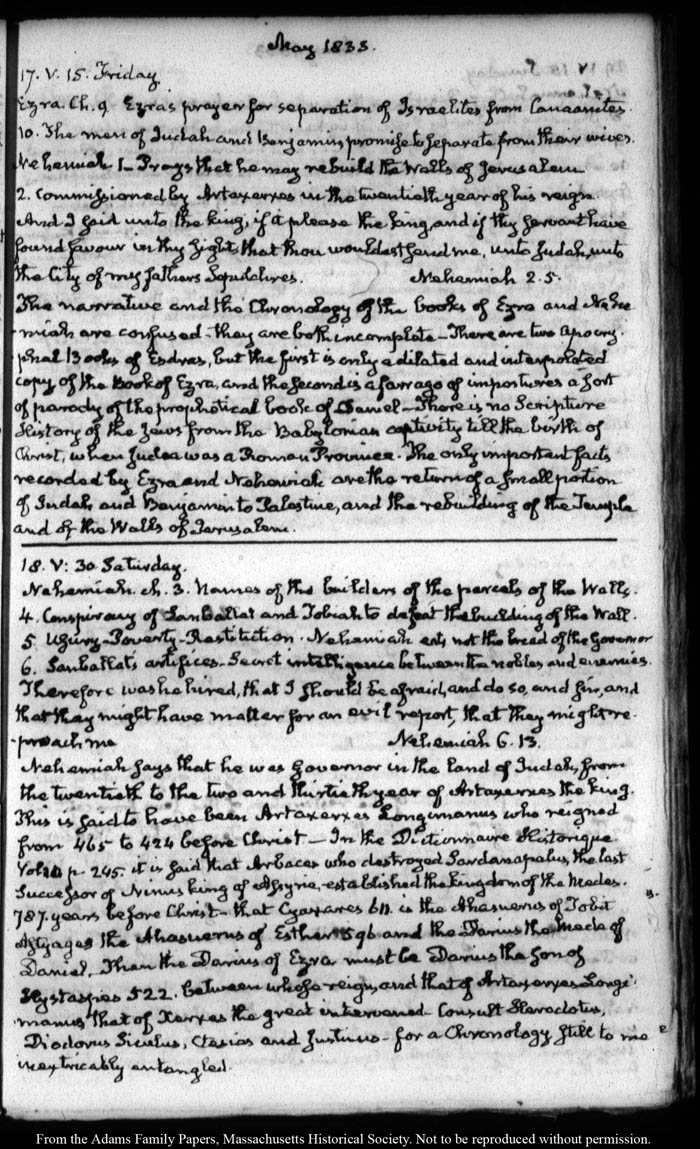 May 1833.
17. V. 15. Friday
Ezra. Ch. 9 Ezra's prayer for separation of Israelites from Canaanites.
10. The men of Judah and Benjamin promise to separate from their wives.
Nehemiah 1 – Prays that he may rebuild the Walls of Jerusalem
2. Commissioned by Artaxerxes in the twentieth year of his reign.
And I said unto the king, if it please the king, and if thy servant have
found favour in thy sight, that thou wouldest send me, unto Judah, unto
the City of my fathers Sepulchres. Nehemiah 2. 5.
The narrative and the Chronology of the books of Ezra and Nehe
miah are confused – they are both incomplete – There are two Apocry-
phal Books of Esdras, but the first is only a dilated and interpolated
copy of the Book of Ezra, and the second is a farrago of impostures a sort
of parody of the prophetical book of Daniel – There is no Scripture
History of the Jews from the Babylonian captivity till the birth of
Christ, when Judea was a Roman Province. The only important facts
recorded by Ezra and Nehemiah are the return of a small portion
of Judah and Benjamin to Palestine, and the rebuilding of the Temple
and of the Walls of Jerusalem.
18. V: 30. Saturday.
Nehemiah. ch. 3. Names of the builders of the parcels of the Walls.
4. Conspiracy of Sanballat and Tobiah to defeat the building of the Wall.
5. Usury – Poverty – Restitution. Nehemiah eats not the bread of the Governor
6. Sanballat's artifices – Secret intelligence between the nobles and enemies.
Therefore was he hired, that I should be afraid, and do so, and sin, and
that they might have matter for an evil report, that they might re-
-proach me Nehemiah 6. 13.
Nehemiah says that he was Governor in the land of Judah, from
the twentieth to the two and thirtieth year of Artaxerxes the king.
This is said to have been Artaxerxes Longimanus who reigned
from 465 to 424 before Christ. – In the Dictionnaire Historique
p. 245. it is said that Arbaces who destroyed Sardanapalus, the last
Successor of Ninus king of Assyria, established the kingdom of the Medes.
787. years before Christ – that Cyaxares 611. is the Ahasuerus of Tobit
Astyages the Ahasuerus of Esther 596 and the Darius the Mede of
Daniel. Then the Darius of Ezra must be Darius the son of
Hystaspes 522. between whose reign, and that of Artaxerxes Longi-
manus, that of Xerxes the great intervened – Consult Herodotus,
Diodorus Siculus, Ctesias and Justinus – for a Chronology still to me
inextricably entangled.
From the Adams Family Papers, Massachusetts Historical Society. Not to be reproduced without permission.